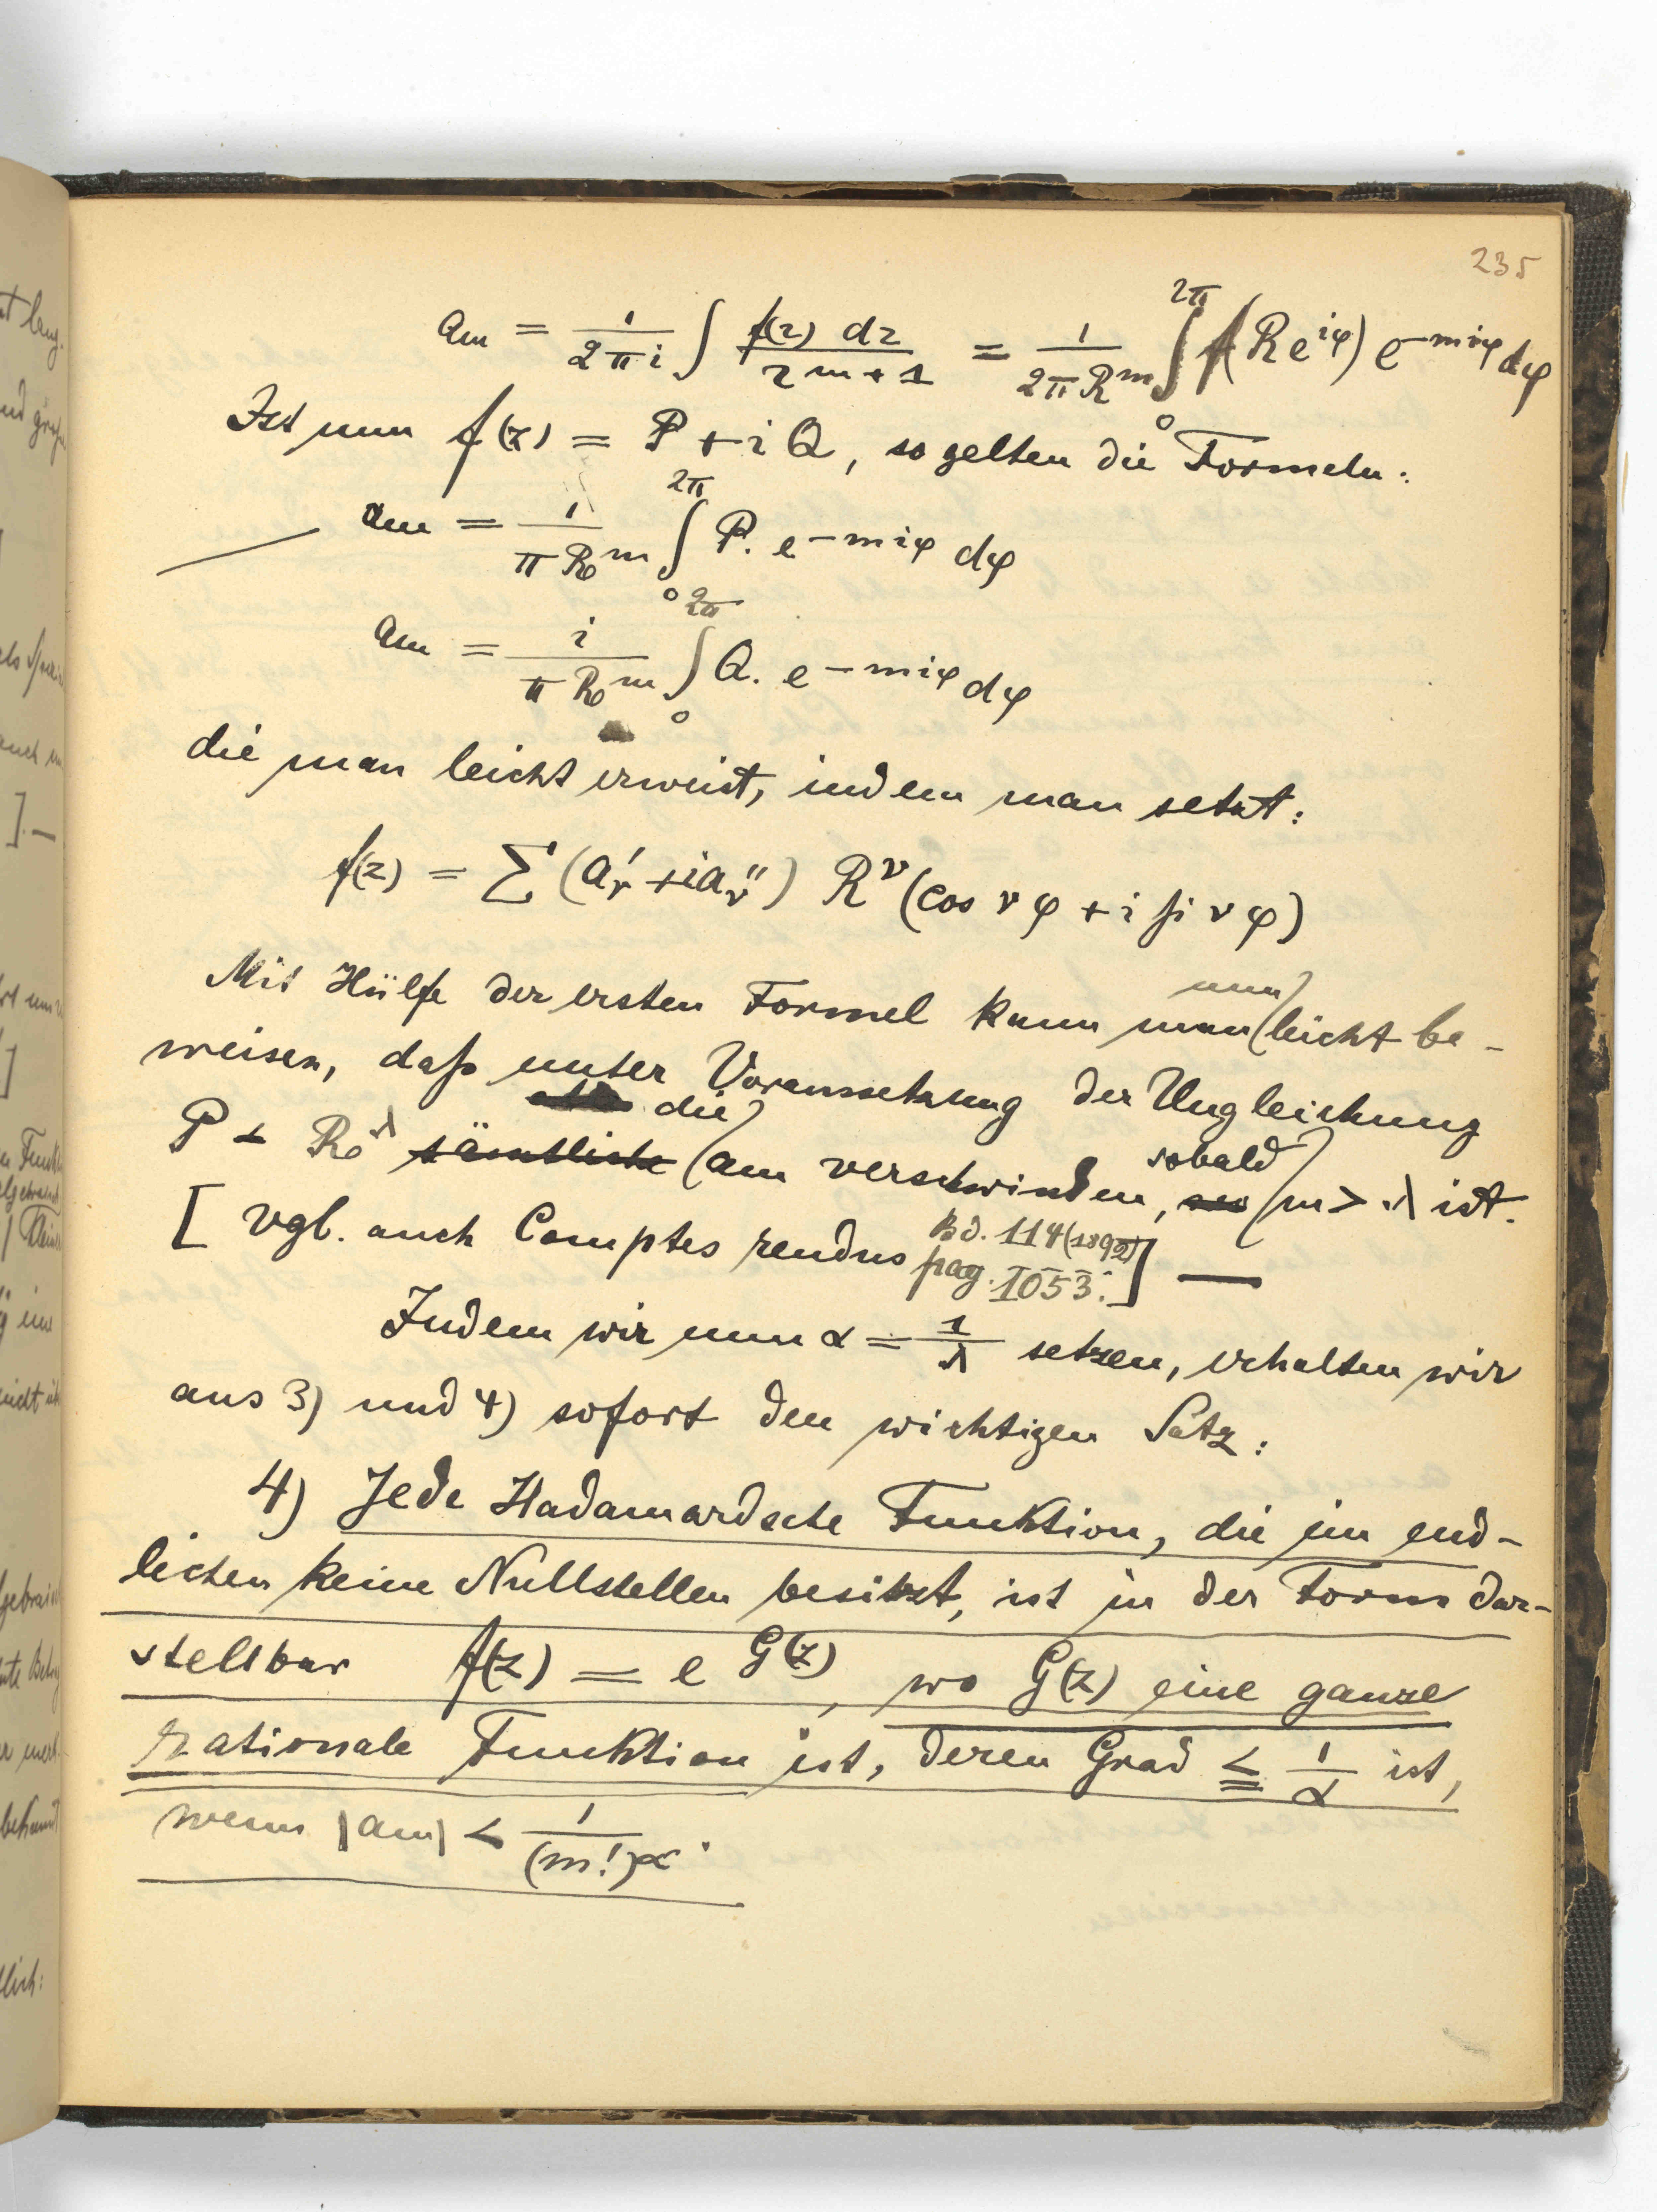 235
am = 1/(2πi) ∫ f(z) dz / z^(m+1) = 1/(2πR^m) ∫_0^2π f(Re^(iφ)) e^(-miφ) dφ
Ist nun f(z) = P + iQ, so gelten die Formeln:
am = 1/(πR^m) ∫_0^2π P. e^(-miφ) dφ
am = i/(πR^m) ∫_0^2π Q. e^(-miφ) dφ
die man leicht erweist, indem man setzt:
f(z) = Σ (a'ν + ia''ν) R^ν (cos νφ + i si νφ)
Mit Hülfe der ersten Formel kann man nun leicht be-
weisen, daß unter Voraussetzung der Ungleichung
P < R^λ sämtliche die am verschwinden, sobald m > λ ist.
[vgl. auch Comptes rendus Bd. 114 (1892) pag. 1053.] —
Indem wir nun α = 1/λ setzen, erhalten wir
aus 3) und 4) sofort den wichtigen Satz:
4) Jede Hadamardsche Funktion, die im end-
lichen keine Nullstellen besitzt, ist in der Form dar-
stellbar f(z) = e^G(z), wo G(z) eine ganze
rationale Funktion ist, deren Grad ≦ 1/α ist,
wenn |am| < 1/(m!)^α.